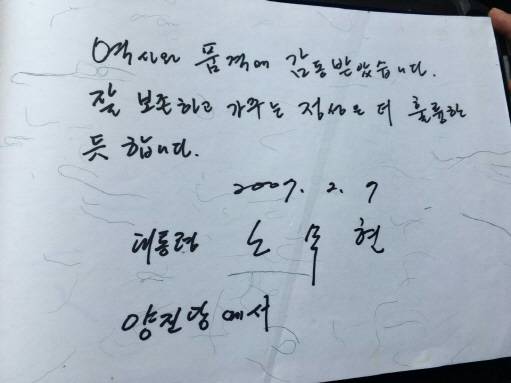 역사와 품격에 감동 받았습니다.
잘 보존하고 가꾸는 정성은 더 훌륭한
듯 합니다.
2007. 2. 9
대통령 노무현
양진당에서